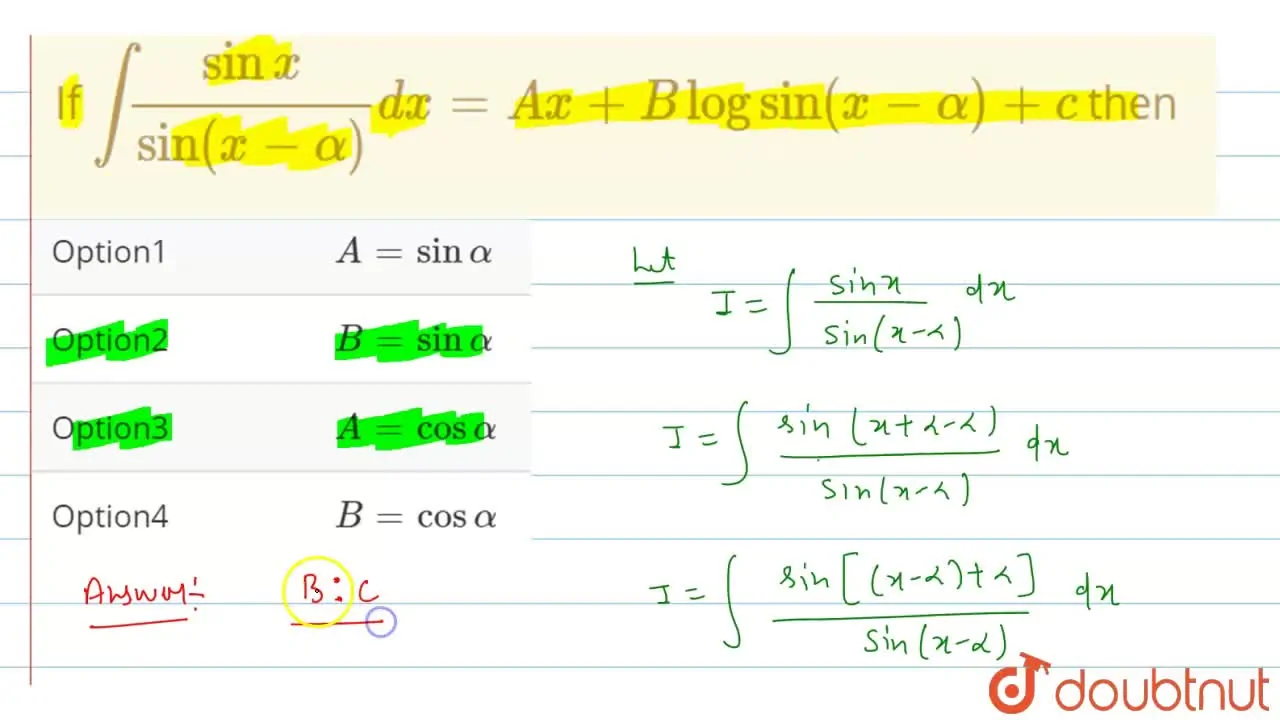 If ∫ sin x / sin(x − α) dx = Ax + B log sin(x − α) + c then
Option1 A = sin α
Option2 B = sin α
Option3 A = cos α
Option4 B = cos α
Answer:- B : C
Let
I = ∫ sin x / sin(x-α) dx
I = ∫ sin (x+α-α) / sin(x-α) dx
I = ∫ sin[(x-α)+α] / sin(x-α) dx
doubtnut